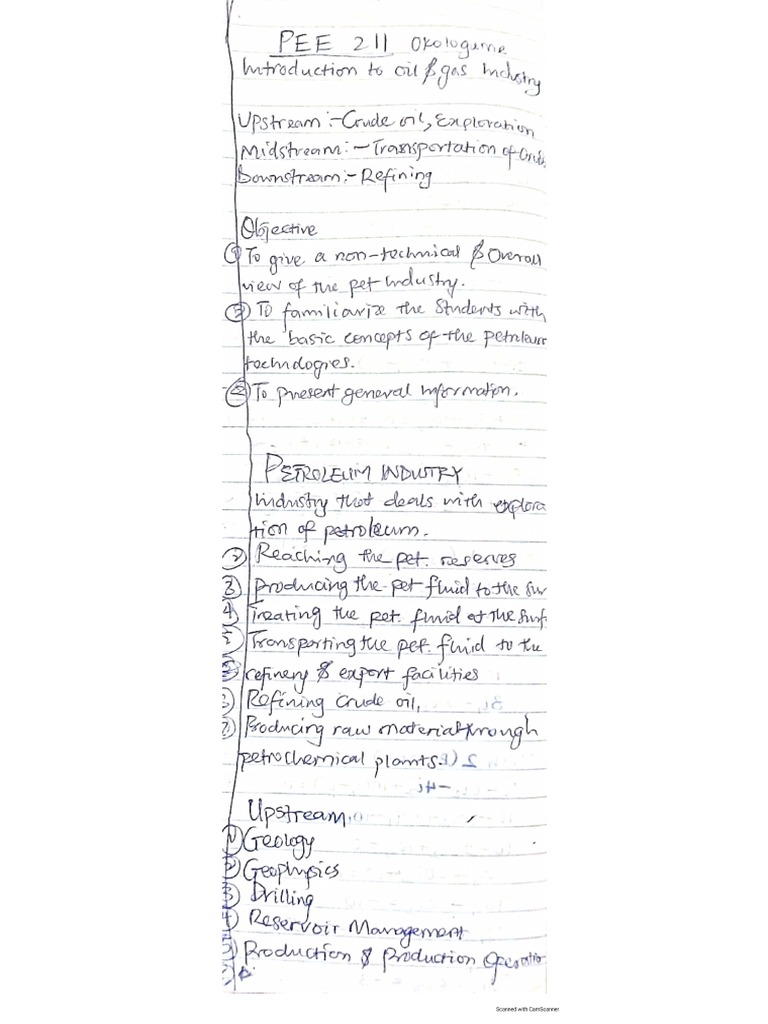 PEE 211 Okologume
Introduction to oil & gas Industry
Upstream :- Crude oil, Exploration
Midstream :- Transportation of Crude
Downstream :- Refining
Objective
① To give a non-technical & Overall
view of the pet industry.
③ To familiarize the Students with
the basic concepts of the petroleum
technologies.
② To present general information.
PETROLEUM INDUSTRY
Industry that deals with explora
tion of petroleum.
② Reaching the pet. reserves
③ Producing the pet fluid to the sur
④ Treating the pet. fluid at the surf.
⑤ Transporting the pet. fluid to the
refinery & export facilities
Refining crude oil,
⑦ Producing raw material through
petrochemical plants.
Upstream
① Geology
② Geophysics
③ Drilling
④ Reservoir Management
⑤ Production & Production Operatio
Scanned with CamScanner